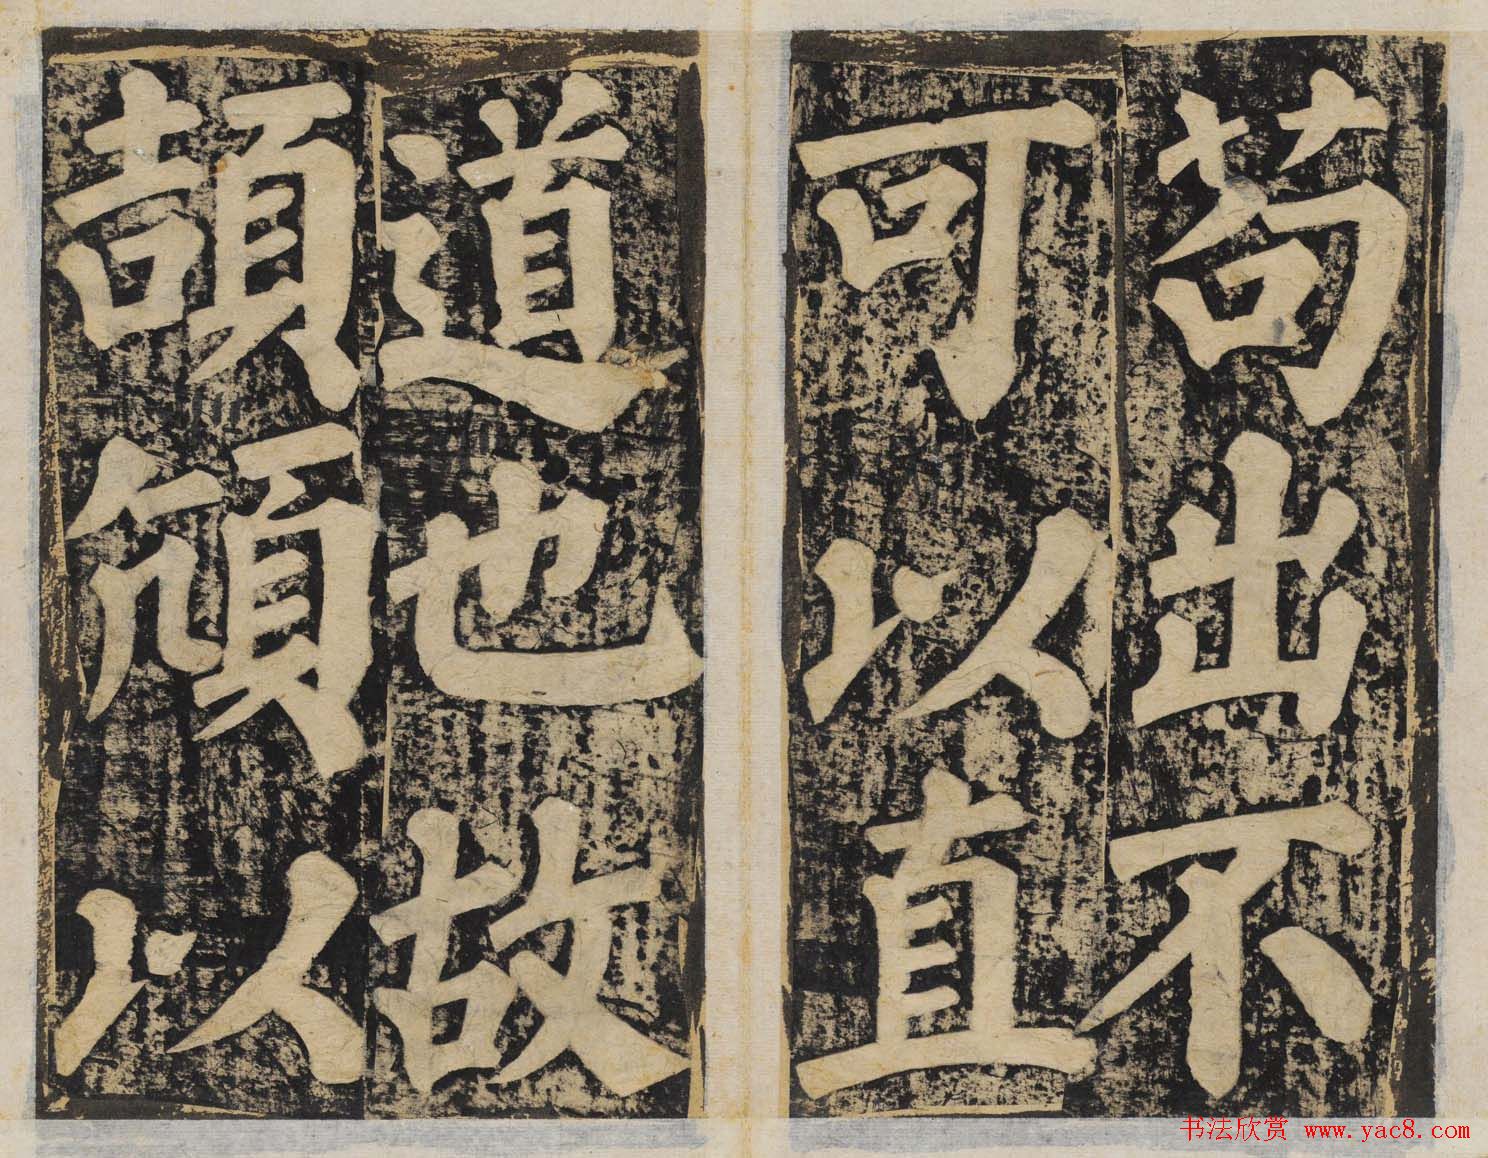 苟出不
可以直
道也故
頡頏以
书法欣赏 www.yac8.com